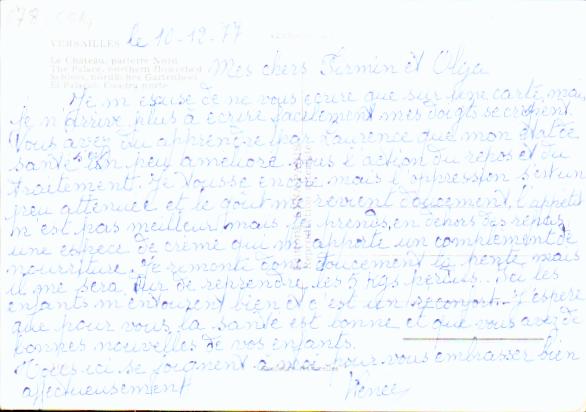 VERSAILLES le 10-12-77
Le Château, parterre Nord
The Palace, northern flowerbed
El Palacio
Mes chers Firmin et Olga
Je m'excuse de ne vous écrire que sur une carte, mais
je n'arrive plus à écrire facilement mes doigts se crispent.
Vous avez du apprendre par Laurence que mon état de
santé s'est un peu amélioré sous l'action du repos et du
traitement. Je tousse encore mais l'oppression s'est un
peu atténuée et le goût me revient doucement, l'appétit
n'est pas meilleur mais je prends en dehors des repas
une espèce de crème qui m'apporte un complément de
nourriture. Je remonte donc doucement la pente mais
il me sera dur de reprendre les 5 kgs perdus. Ici les
enfants m'entourent bien et c'est un réconfort. J'espère
que pour vous la santé est bonne et que vous avez de
bonnes nouvelles de vos enfants.
Tous ici se joignent à moi pour vous embrasser bien
affectueusement